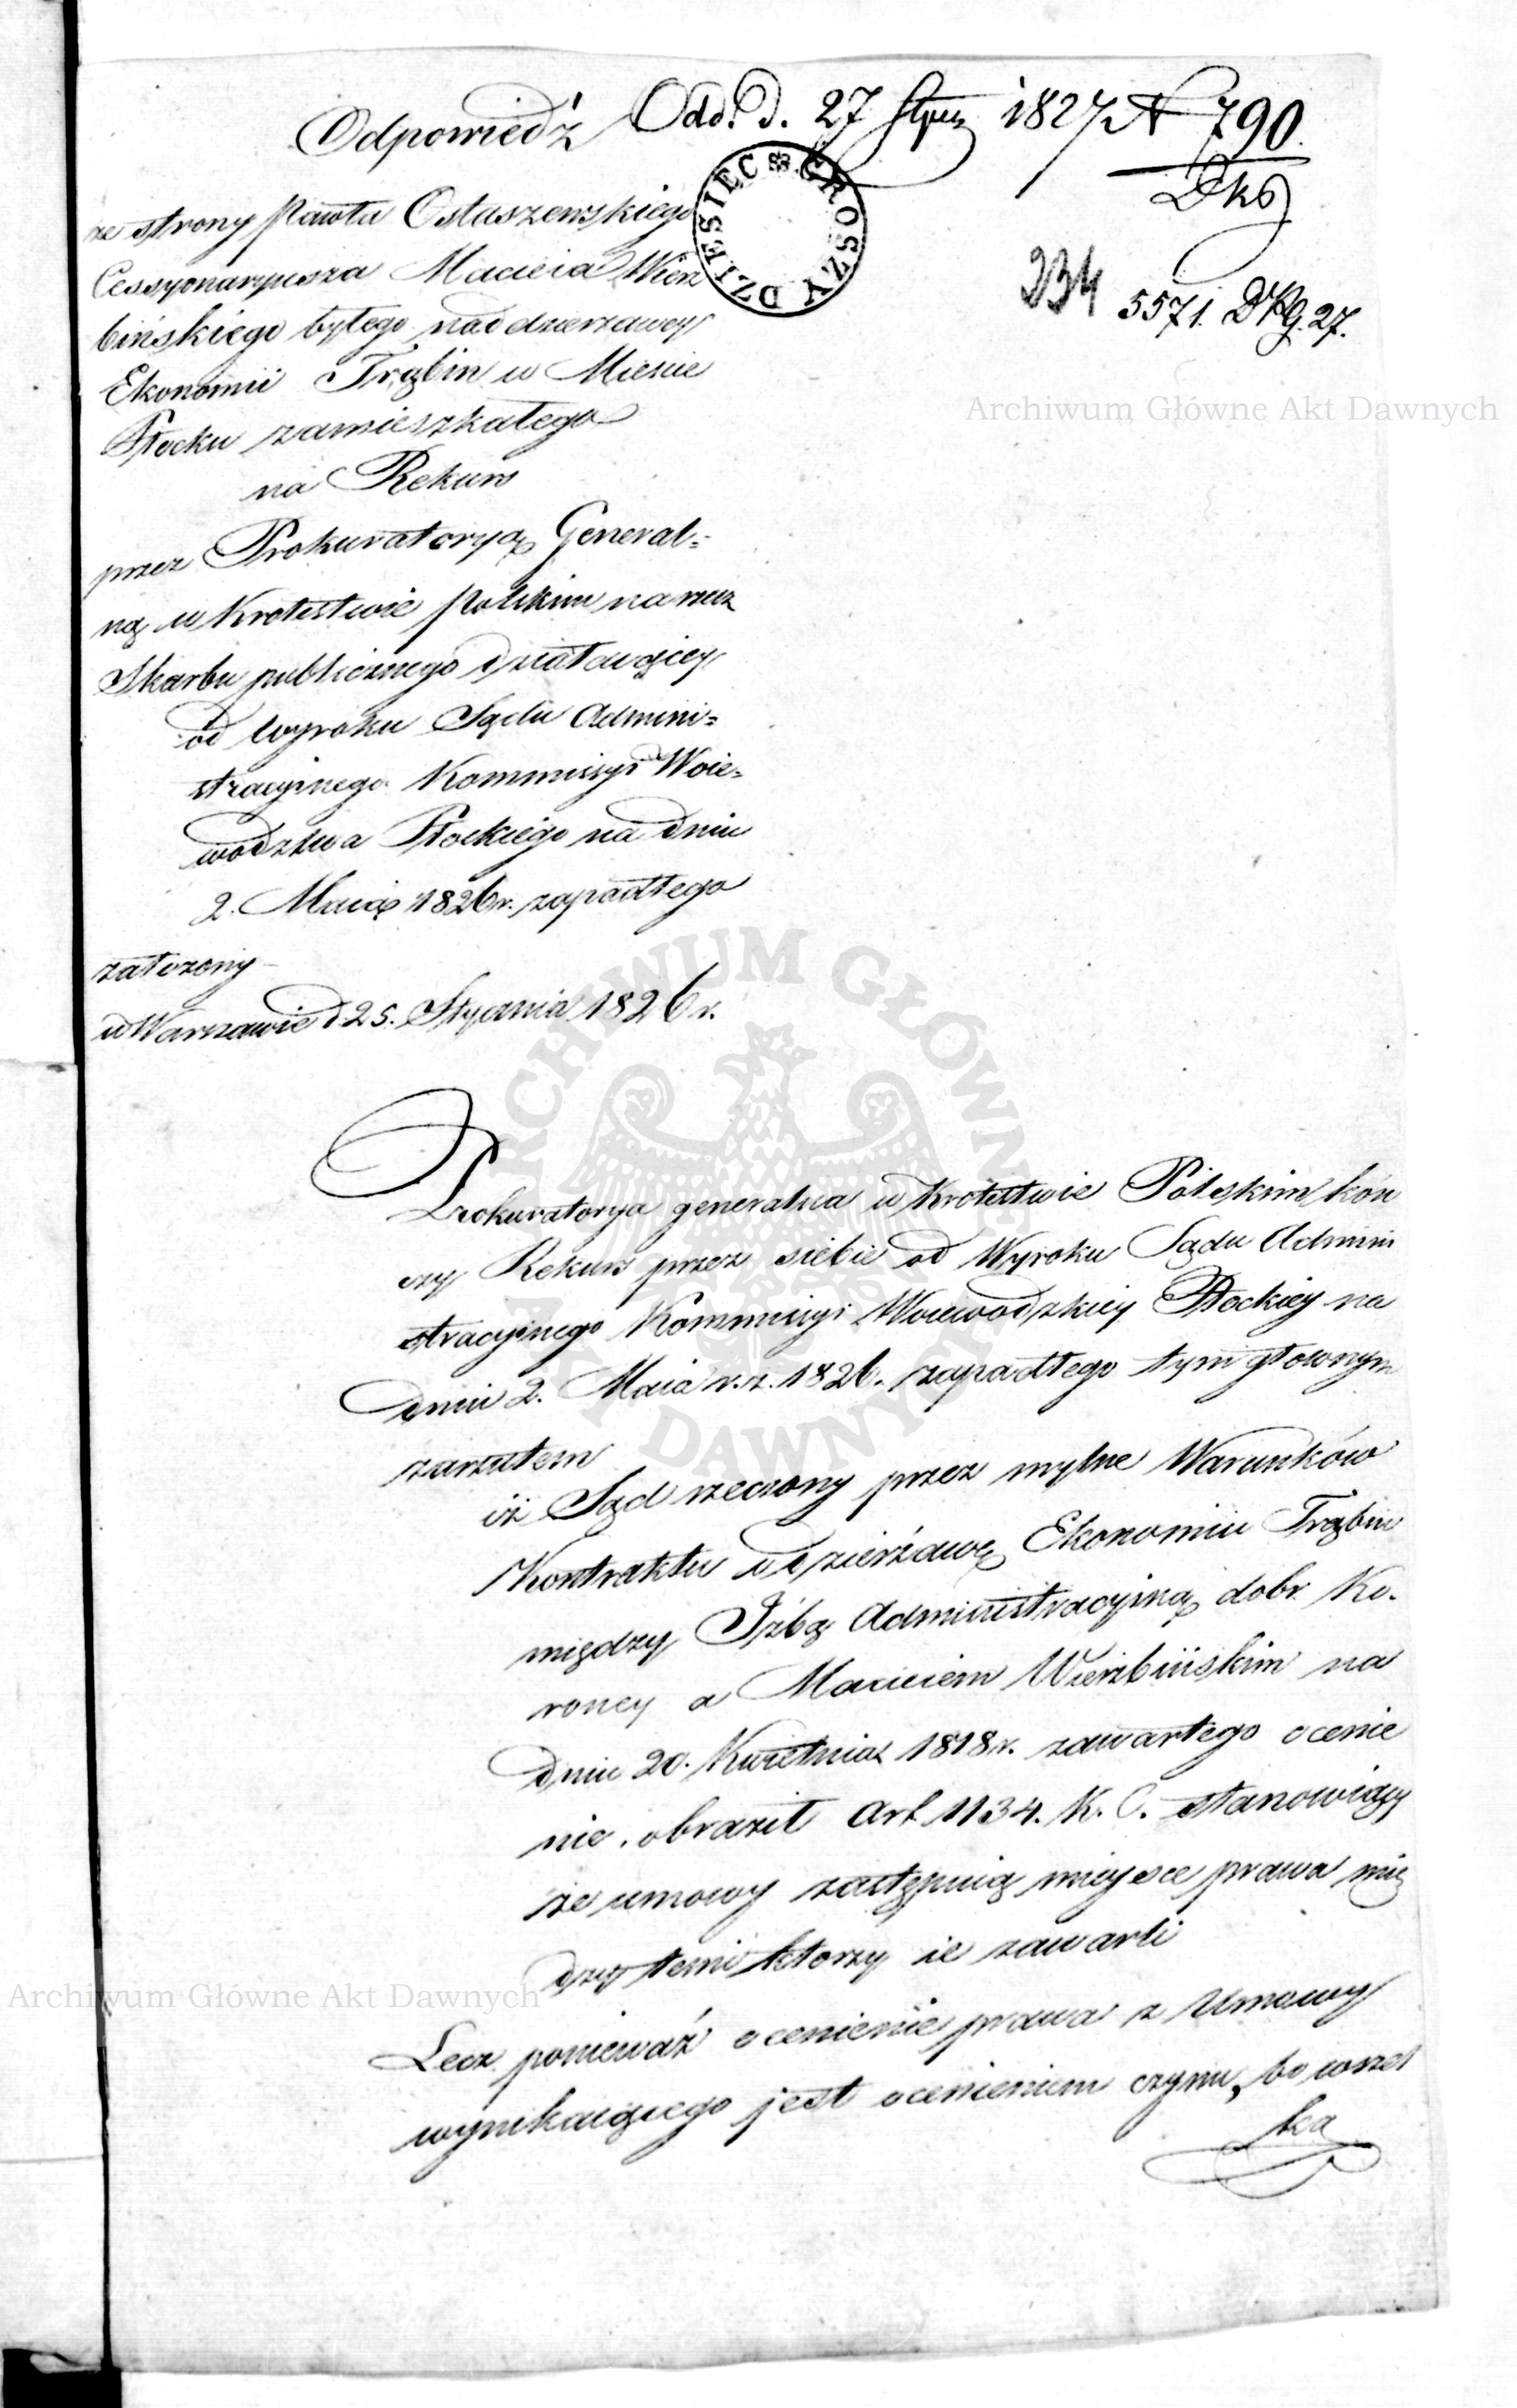 Odpowiedź
Odd. d. 27 Stycz 1827 N 790.
DZIESIĘC GROSZY
234
5571. DKG. 27.
ze strony Pawła Ostaszewskiego
Cessyonaryusza Macieia Wierz
bińskiego byłego naddzierzawcy
Ekonomii Trąbin w Miescie
Płocku zamieszkałego
na Rekurs
przez Prokuratoryą General=
ną w Krolestwie Polskim na rzecz
Skarbu publicznego działaiącey
od Wyroku Sądu Admini=
stracyinego Kommissyi Woie=
wodztwa Płockiego na dniu
2. Maia 1826 r. zapadłego
założony
w Warszawie d. 25. Stycznia 1826 r.
Archiwum Główne Akt Dawnych
ARCHIWUM GŁÓWNE AKT DAWNYCH
Prokuratorya generalna w Krolestwie Polskim koń
czy Rekurs przez siebie od Wyroku Sądu Admini
stracyinego Kommissyi Woiewodzkiey Płockiey na
dniu 2. Maia r. z. 1826. zapadłego tym głownym
zarzutem
iż Sąd rzeczony przez mylne Warunków
Kontraktu o dzierżawę Ekonomii Trąbin
między Jzbą Administracyiną dobr Ko-
roney a Macieiem Wierzbińskim na
dniu 20. Kwietnia 1818 r. zawartego ocenie
nie, obraził Art 1134. K. C. stanowiący
że umowy zastępuią mieysce prawa mię
dzy temi ktorzy ie zawarli
Archiwum Główne Akt Dawnych
Lecz ponieważ ocenienie prawa z Umowy
wynikaiącego jest ocenieniem czynu, bo wszel
ka